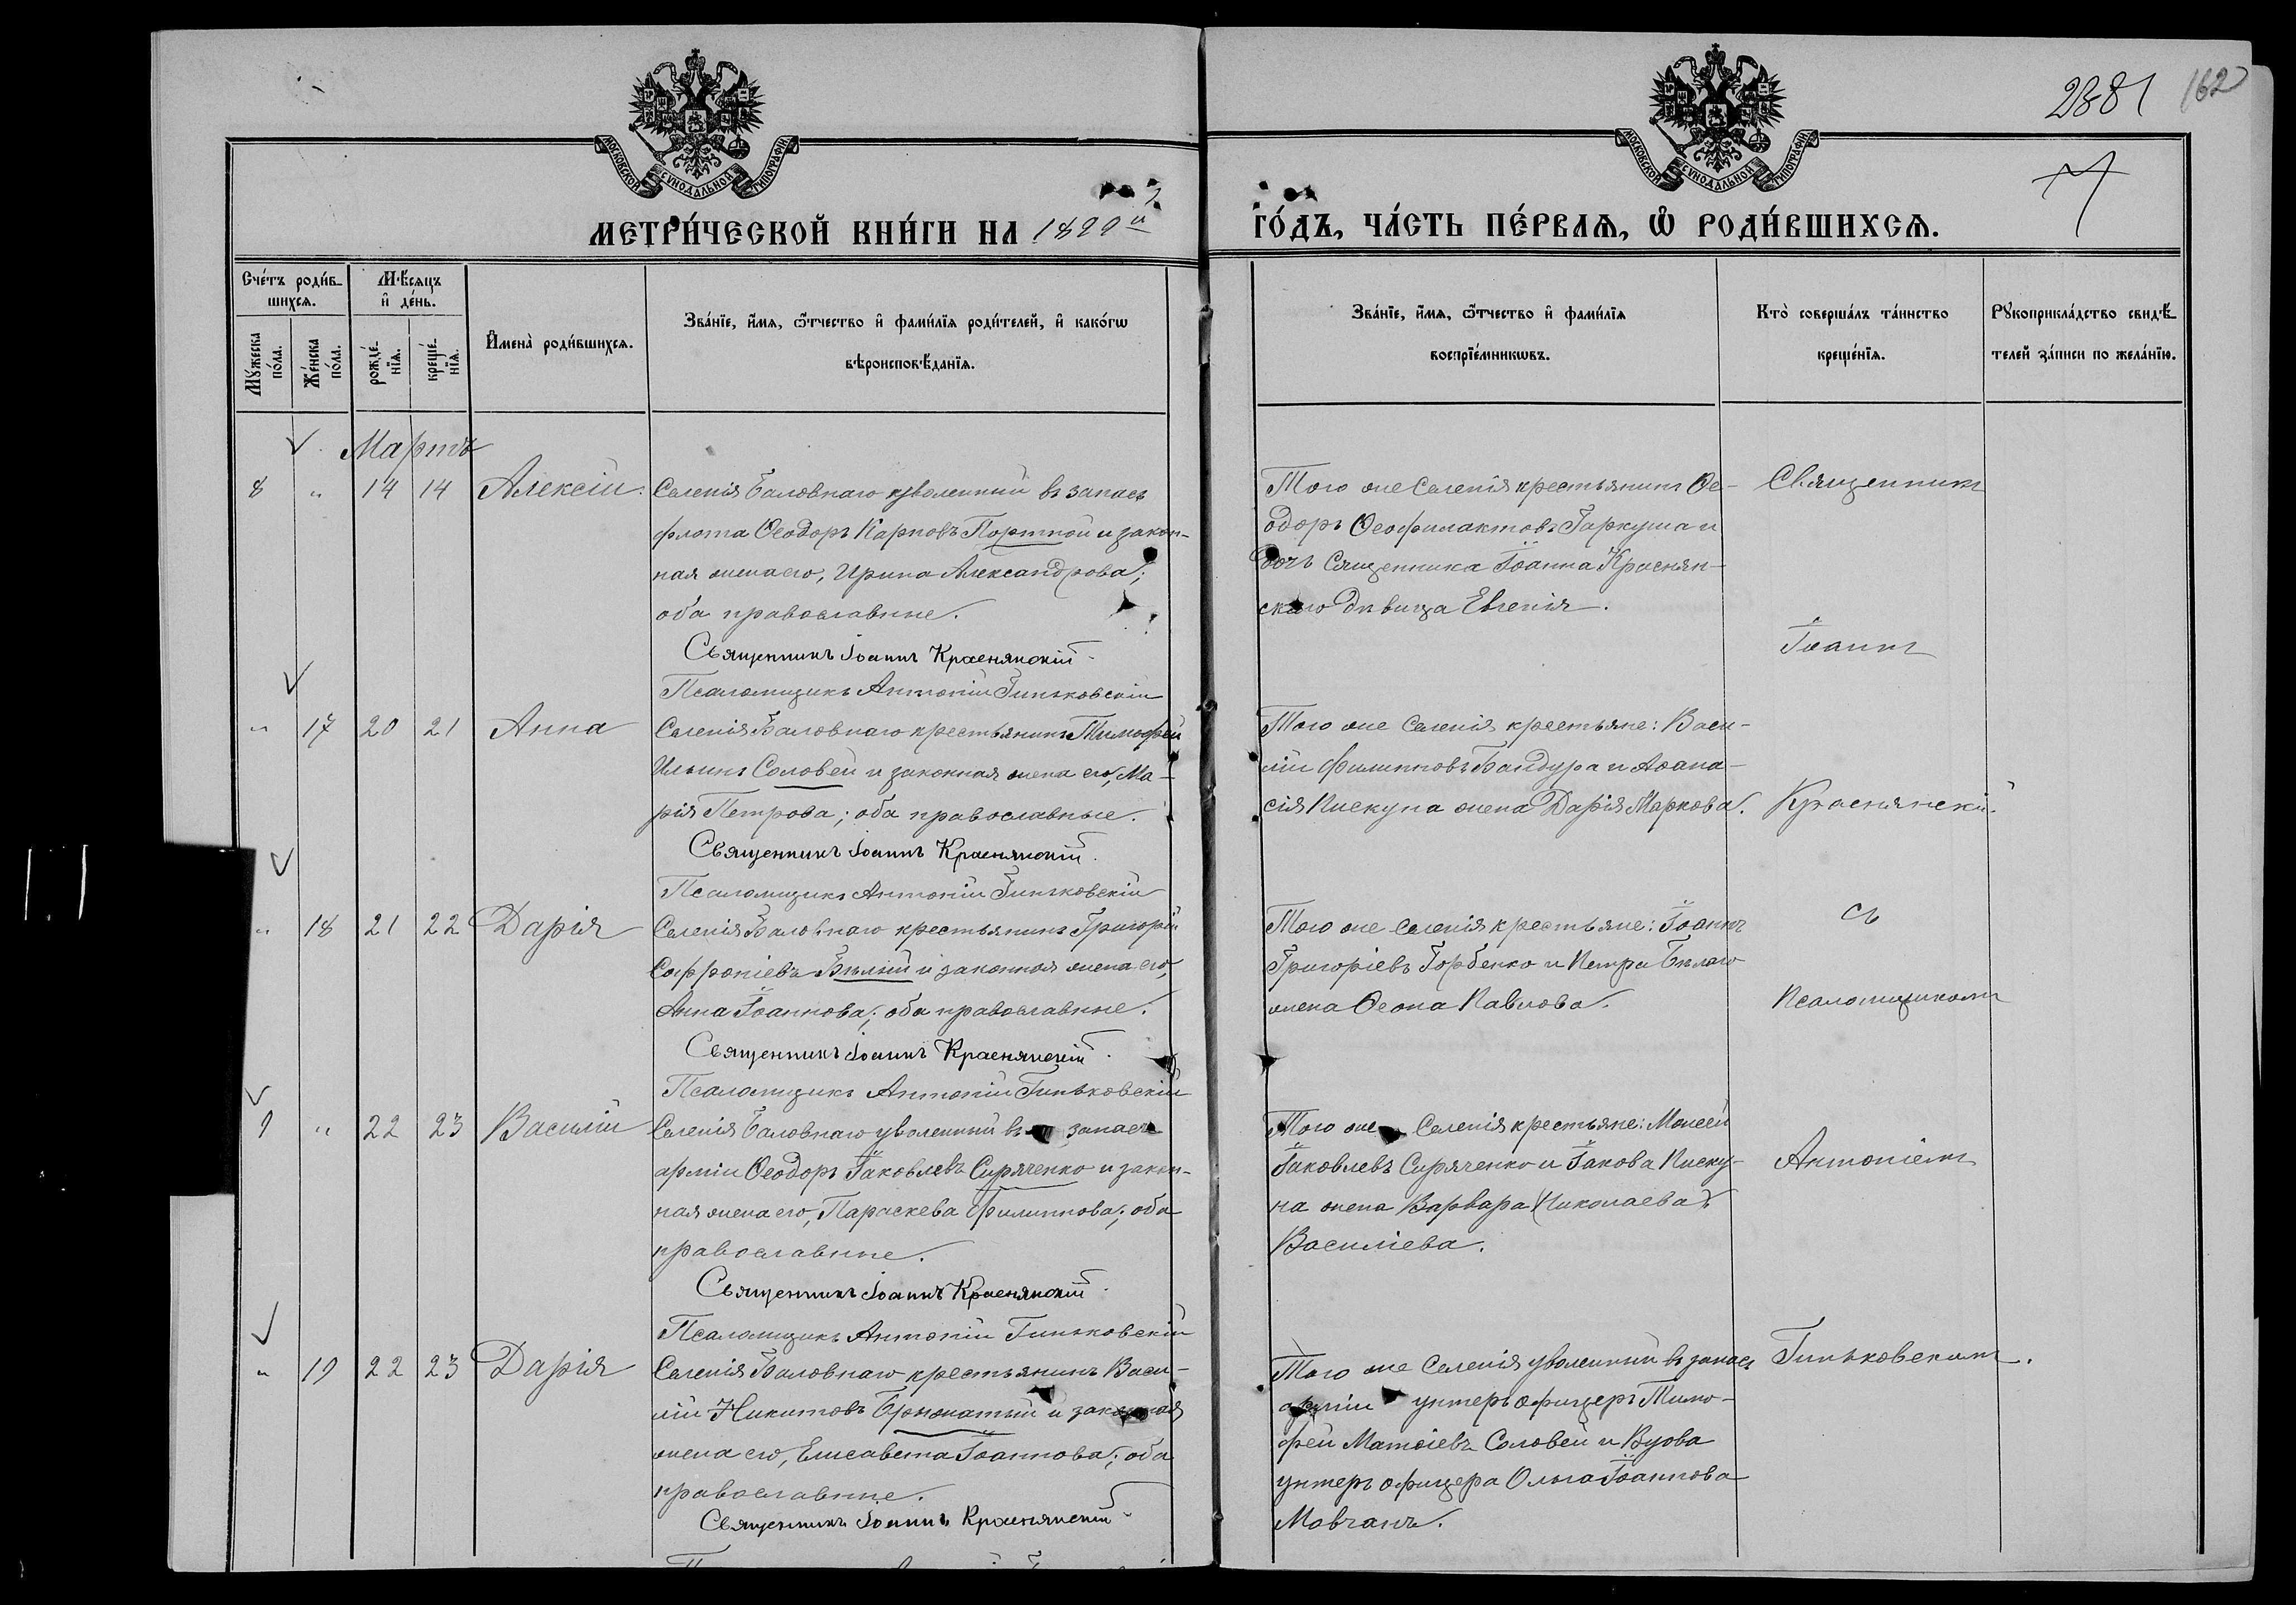 2881 162
7
МОСКОВСКОЙ СѴНОДАЛЬНОЙ ТИПОГРАФІИ
МОСКОВСКОЙ СѴНОДАЛЬНОЙ ТИПОГРАФІИ
МЕТРИ́ЧЕСКОЙ КНИ́ГИ НА 1899й ГО́ДЪ, ЧА́СТЬ ПЕ́РВАѦ, Ѽ РОДИ́ВШИХСѦ.
Сче́тъ роди́в-
шихсѧ.
Му́жеска по́ла.
Же́нска по́ла.
Мѣ́сѧцъ
и҆ де́нь.
рожде́-
нїѧ.
креще́-
нїѧ.
И҆мена̀ роди́вшихсѧ.
Зва́нїе, и҆́мѧ, ѻ҆́тчество и҆ фами́лїѧ роди́телей, и҆ како́гѡ
вѣроисповѣ́данїѧ.
Зва́нїе, и҆́мѧ, ѻ҆́тчество и҆ фами́лїѧ
воспрїе́мникѡвъ.
Кто̀ соверша́лъ та́инство
креще́нїѧ.
Рꙋкоприкла́дство свидѣ́-
телей за́писи по жела́нїю.
Мартъ
8 " 14 14 Алексій.
Селенія Баловнаго уволенный въ запасъ
флота Ѳеодоръ Карповъ Портной и закон-
ная жена его, Ирина Александрова;
оба православные.
Священникъ Іоаннъ Краснянскій
Псаломщикъ Антоній Гиньковскій
Того же Селенія крестьянинъ Ѳе-
одоръ Ѳеофилактовъ Гаркуша и
дочь Священника Іоанна Краснян-
скаго дѣвица Евгенія.
Священникъ
Іоаннъ
" 17 20 21 Анна
Селенія Баловнаго крестьянинъ Тимофей
Ильинъ Соловей и законная жена его, Ма-
рія Петрова; оба православные.
Священникъ Іоаннъ Краснянскій.
Псаломщикъ Антоній Гиньковскій
Того же Селенія крестьяне: Васи-
лій Филипповъ Бандура и Аѳана-
сія Пискуна жена Дарія Маркова.
Краснянскій
" 18 21 22 Дарія
Селенія Баловнаго крестьянинъ Григорій
Софроніевъ Бѣлый и законная жена его,
Анна Іоаннова; оба православные.
Священникъ Іоаннъ Краснянскій.
Псаломщикъ Антоній Гиньковскій
Того же селенія крестьяне: Іоаннъ
Григоріевъ Горбенко и Петра Бѣлаго
жена Ѳеона Павлова.
съ
Псаломщикомъ
9 " 22 23 Василій
Селенія Баловнаго уволенный въ запасъ
арміи Ѳеодоръ Іаковлевъ Сиряченко и закон-
ная жена его, Параскева Филиппова; оба
православные.
Священникъ Іоаннъ Краснянскій.
Псаломщикъ Антоній Гиньковскій
Того же Селенія крестьяне: Моисей
Іаковлевъ Сиряченко и Іакова Писку-
на жена Варвара (Николаева)
Василіева.
Антоніемъ
" 19 22 23 Дарія
Селенія Баловнаго крестьянинъ Васи-
лій Никитовъ Брюхатый и законная
жена его, Елисавета Іоаннова; оба
православные.
Священникъ Іоаннъ Краснянскій
Того же Селенія уволенный въ запасъ
арміи унтеръ офицеръ Тимо-
фей Матѳіевъ Соловей и Вдова
унтеръ офицера Ольга Іоаннова
Мовчанъ.
Гиньковскимъ.